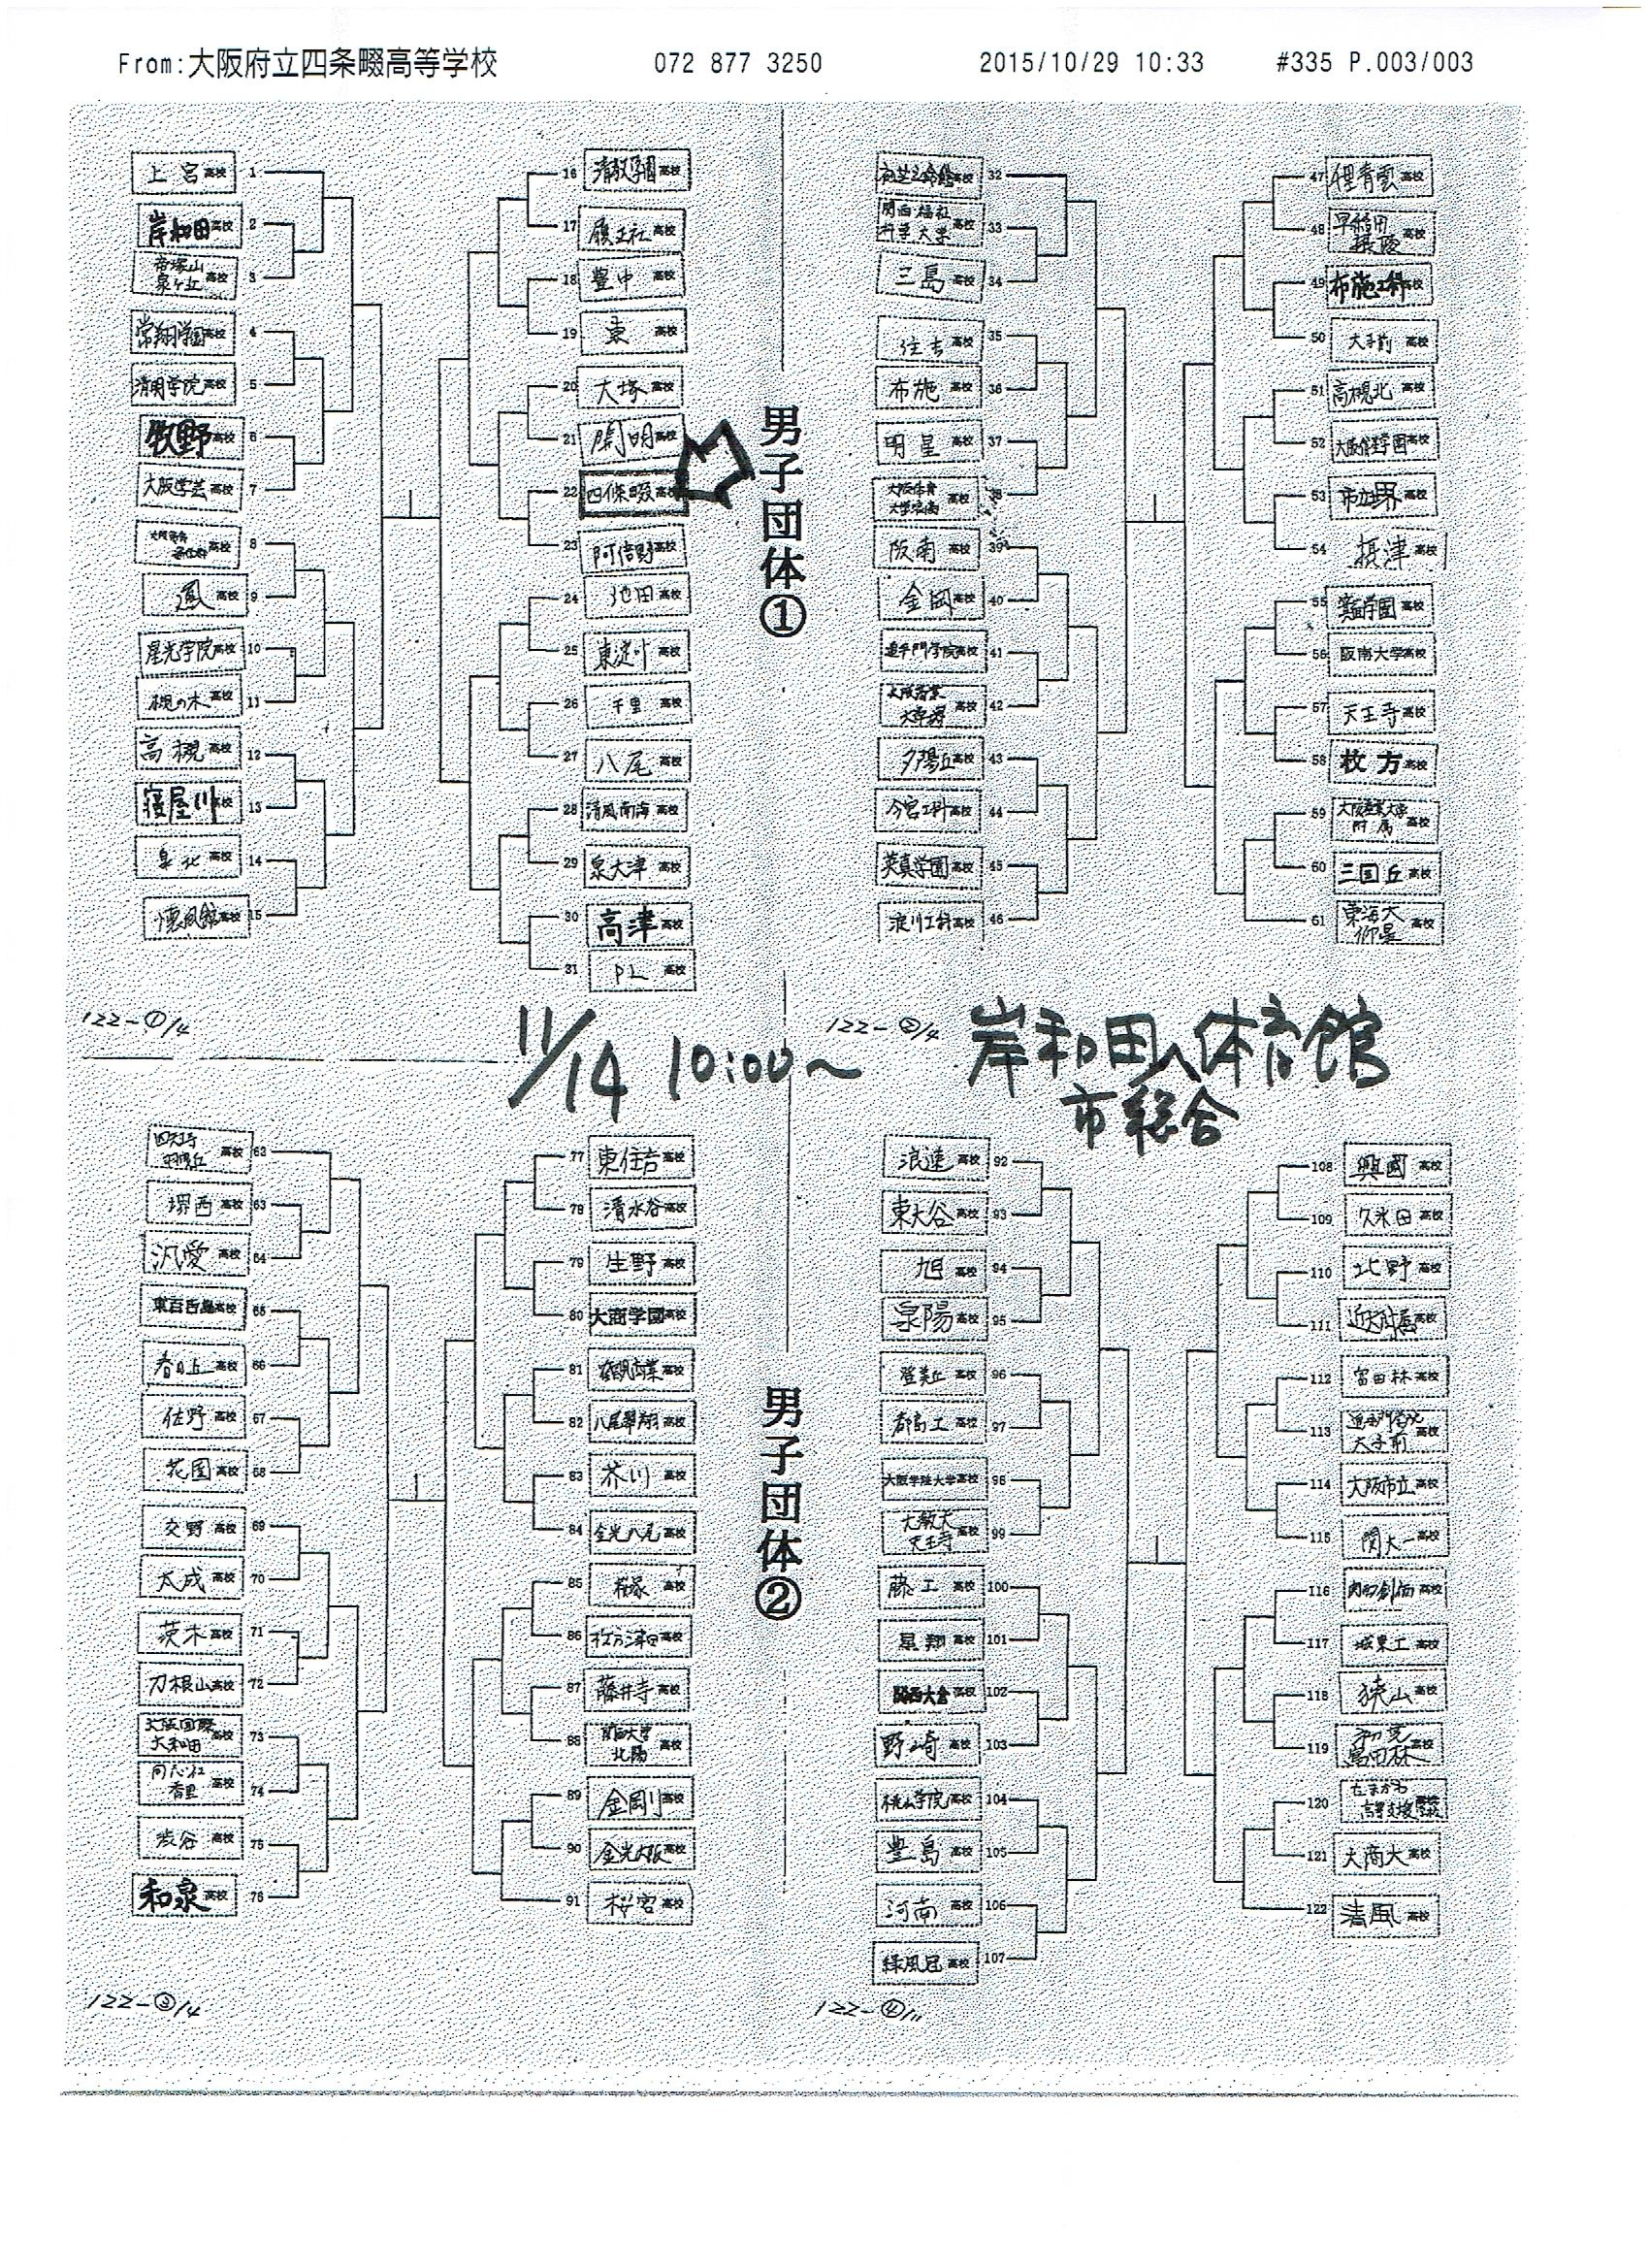 From:大阪府立四条畷高等学校 072 877 3250 2015/10/29 10:33 #335 P.003/003
男子団体①
上宮高校 1
岸和田高校 2
帝塚山泉ヶ丘高校 3
常翔学園高校 4
清明学院高校 5
牧野高校 6
大阪学芸高校 7
高校 8
鳳高校 9
星光学院高校 10
槻の木高校 11
高槻高校 12
寝屋川高校 13
泉北高校 14
懐風館高校 15
16 清教学園高校
17 履正社高校
18 豊中高校
19 東高校
20 大塚高校
21 開明高校
22 四條畷高校
23 阿倍野高校
24 池田高校
25 東淀川高校
26 千里高校
27 八尾高校
28 清風南海高校
29 泉大津高校
30 高津高校
31 PL高校
122-①/4
高校 32
関西福祉科学大学高校 33
三島高校 34
住吉高校 35
布施高校 36
明星高校 37
大阪体育大学浪商高校 38
阪南高校 39
金岡高校 40
追手門学院高校 41
高校 42
夕陽丘高校 43
今宮工科高校 44
英真学園高校 45
淀川工科高校 46
47 狸青雲高校
48 早稲田摂陵高校
49 布施工科高校
50 大手前高校
51 高槻北高校
52 大阪偕星学園高校
53 市立堺高校
54 摂津高校
55 箕面学園高校
56 阪南大学高校
57 天王寺高校
58 枚方高校
59 大阪産業大学附属高校
60 三国丘高校
61 東海大仰星高校
122-②/4
11/14 10:00〜 岸和田市総合体育館
男子団体②
四天王寺羽曳丘高校 62
堺西高校 63
汎愛高校 64
東百舌鳥高校 65
春日丘高校 66
佐野高校 67
花園高校 68
交野高校 69
大成高校 70
茨木高校 71
刀根山高校 72
大阪国際大和田高校 73
同志社香里高校 74
渋谷高校 75
和泉高校 76
77 東住吉高校
78 清水谷高校
79 生野高校
80 大商学園高校
81 高校
82 八尾翠翔高校
83 芥川高校
84 金光八尾高校
85 桜塚高校
86 枚方津田高校
87 藤井寺高校
88 関西大学北陽高校
89 金剛高校
90 金光大阪高校
91 桜宮高校
122-③/4
浪速高校 92
東大谷高校 93
旭高校 94
泉陽高校 95
登美丘高校 96
都島工高校 97
大阪学院大学高校 98
大教大天王寺高校 99
藤工高校 100
星翔高校 101
関西大倉高校 102
野崎高校 103
桃山学院高校 104
豊島高校 105
河南高校 106
緑風冠高校 107
108 興國高校
109 久米田高校
110 北野高校
111 近大附属高校
112 富田林高校
113 追手門学院大手前高校
114 大阪市立高校
115 関大一高校
116 関西創価高校
117 城東工高校
118 狭山高校
119 初芝富田林高校
120 たまがわ高等支援学校
121 大商大高校
122 清風高校
122-④/4